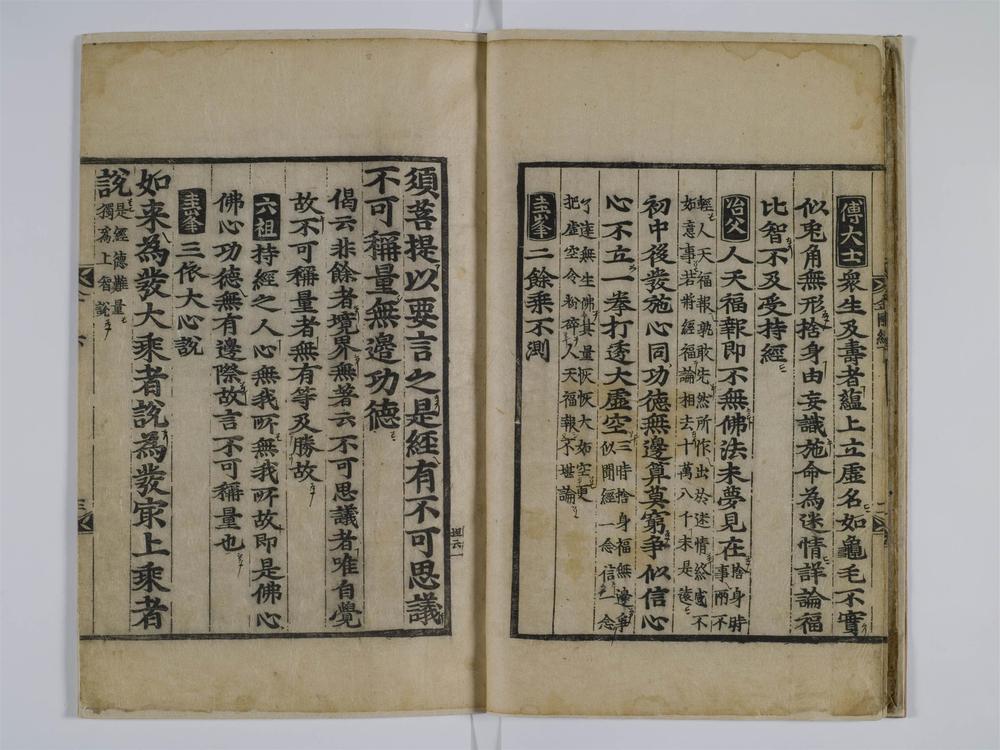 傅大士 衆生及壽者蘊上立虛名如龜毛不實
似兎角無形捨身由妄識施命為迷情詳論福
比智不及受持經
冶父 人天福報即不無佛法未夢見在
捨身時
事兩不
輕人天福報孰敢先然所作出於迷情終
如意事若將經福論相去十萬八千未是遠
初中後發施心同功德無邊算莫窮争似信心
心不立一拳打透大虛空
三時捨身福無邊爭
似圎經一念信一念
了達無生佛其量恢恢大如空更
把虛空令粉碎人天福報不堪論
圭峯 二餘乘不測
金剛經
須菩提以要言之是經有不可思議
不可稱量無邊功德
偈云非餘者境界無著云不可思議者唯自覺
故不可稱量者無有等及勝故
六祖 持經之人心無我所無我所故即是佛心
佛心功德無有邊際故言不可稱量也
圭峯 三依大心說
如來為發大乘者說為發㝡上乘者
說
是經德難量
獨為上智說